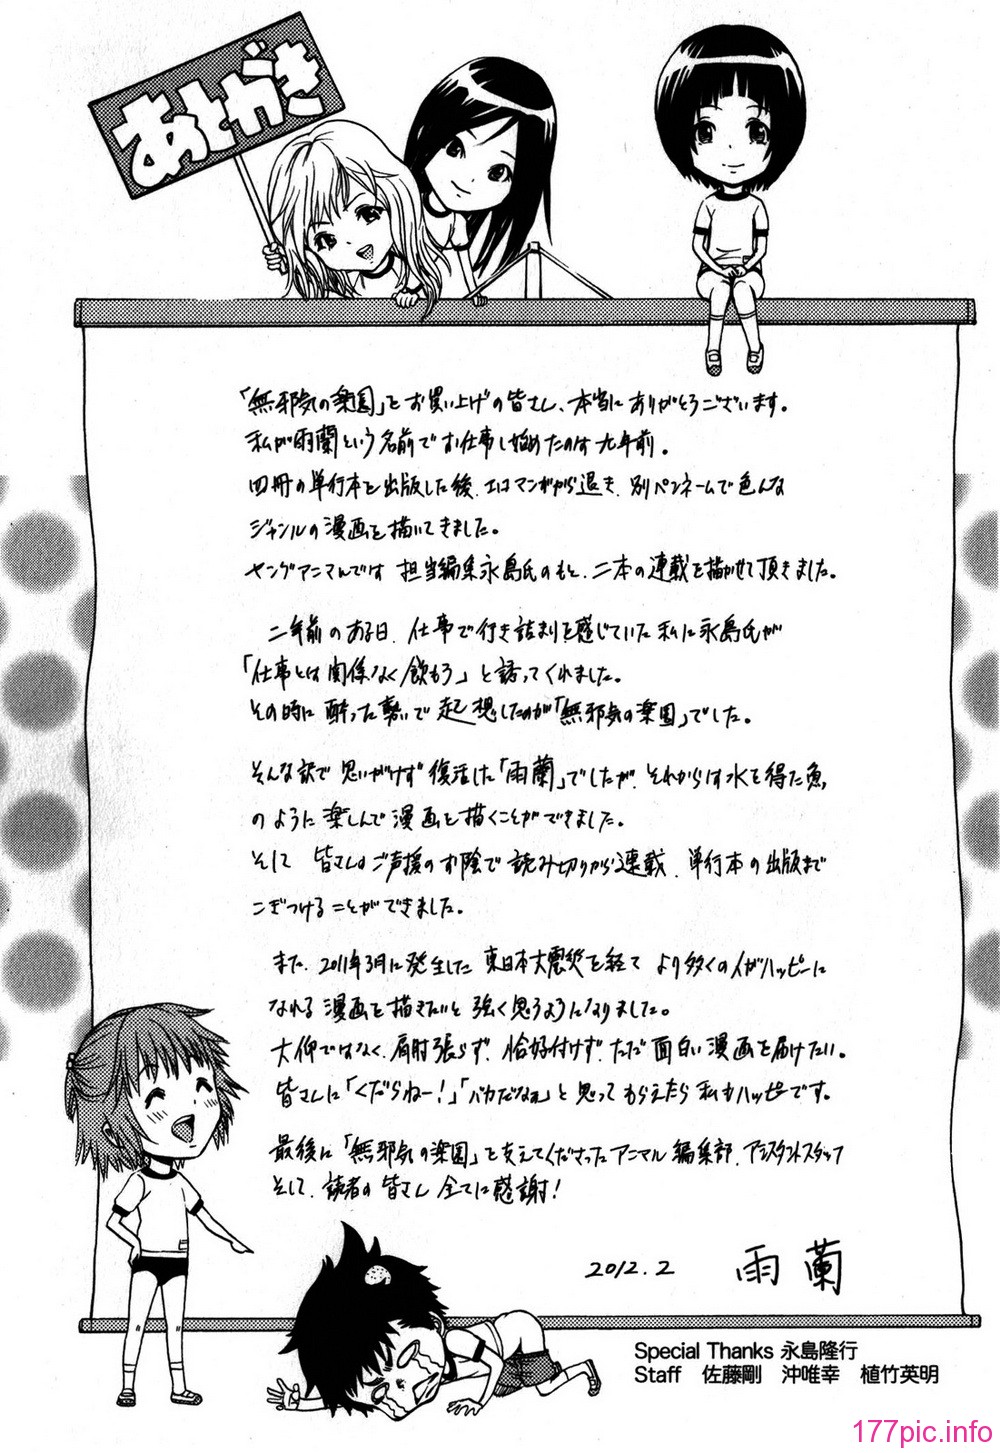 あとがき
「無邪気の楽園」をお買い上げの皆さん、本当にありがとうございます。
私が雨蘭という名前でお仕事し始めたのは九年前。
四冊の単行本を出版した後、エロマンガから退き、別ペンネームで色んな
ジャンルの漫画を描いてきました。
ヤングアニマルでは 担当編集永島氏のもと、二本の連載を描かせて頂きました。
二年前のある日、仕事で行き詰まりを感じていた私に永島氏が
「仕事とは関係なく飲もう」と誘ってくれました。
その時に酔った勢いで起想したのが「無邪気の楽園」でした。
そんな訳で思いがけず復活した「雨蘭」でしたが、それからは水を得た魚
のように楽しんで漫画を描くことができました。
そして 皆さんのご声援のお陰で読み切りから連載、単行本の出版まで
こぎつけることができました。
また、2011年3月に発生した 東日本大震災を経て より多くの人がハッピーに
なれる漫画を描きたいと強く思うようになりました。
大仰ではなく、肩肘張らず、恰好付けず、ただ面白い漫画を届けたい。
皆さんに「くだらねー！」「バカだなぁ」と思ってもらえたら私もハッピーです。
最後に「無邪気の楽園」を支えてくださったアニマル編集部、アシスタントスタッフ
そして、読者の皆さん 全てに感謝！
2012.2 雨蘭
Special Thanks 永島隆行
Staff 佐藤剛 沖唯幸 植竹英明
177pic.info